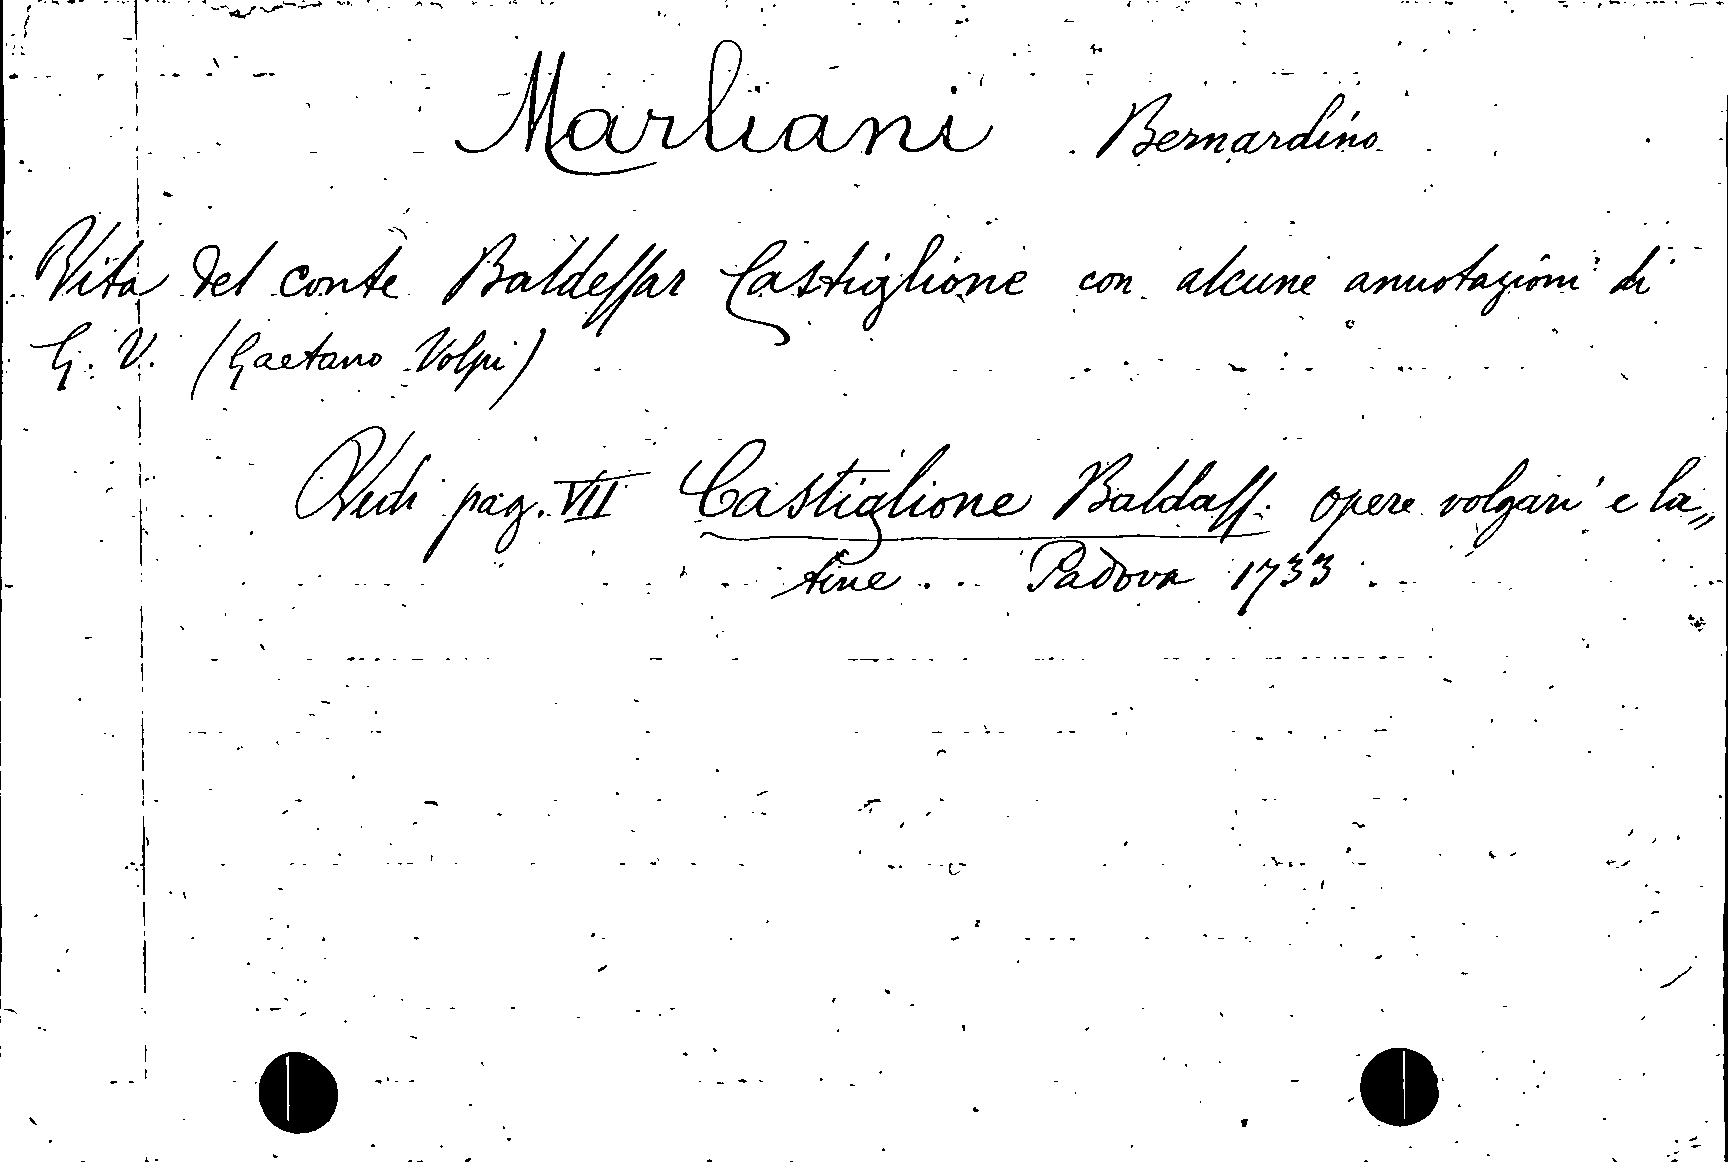 Marliani Bernardino
Vita del conte Baldessar Castiglione con alcune annotazioni di
G. V. (Gaetano Volpi)
Vedi pag. VII Castiglione Baldass. opere volgari e la„
tine . . Padova 1733